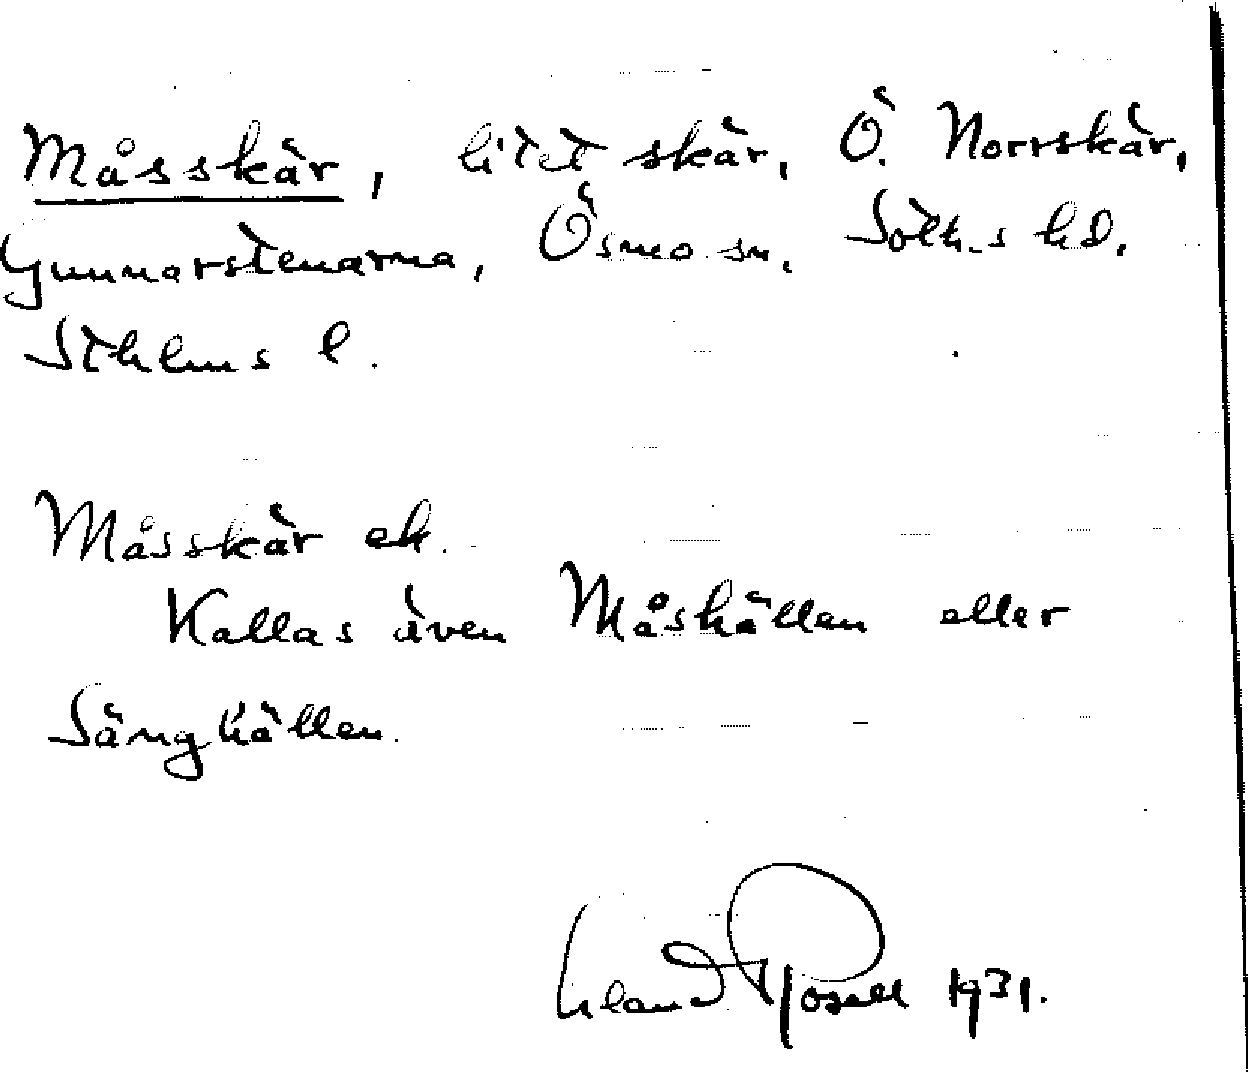 Måsskär, litet skär, Ö. Norrskär,
Gunnarstenarna, Ösmo sn, Soth-s hd.
Sthlms l.
Måsskär ek.
Kallas även Måshällen eller
Sänghällen.
Erland Rosell 1931.